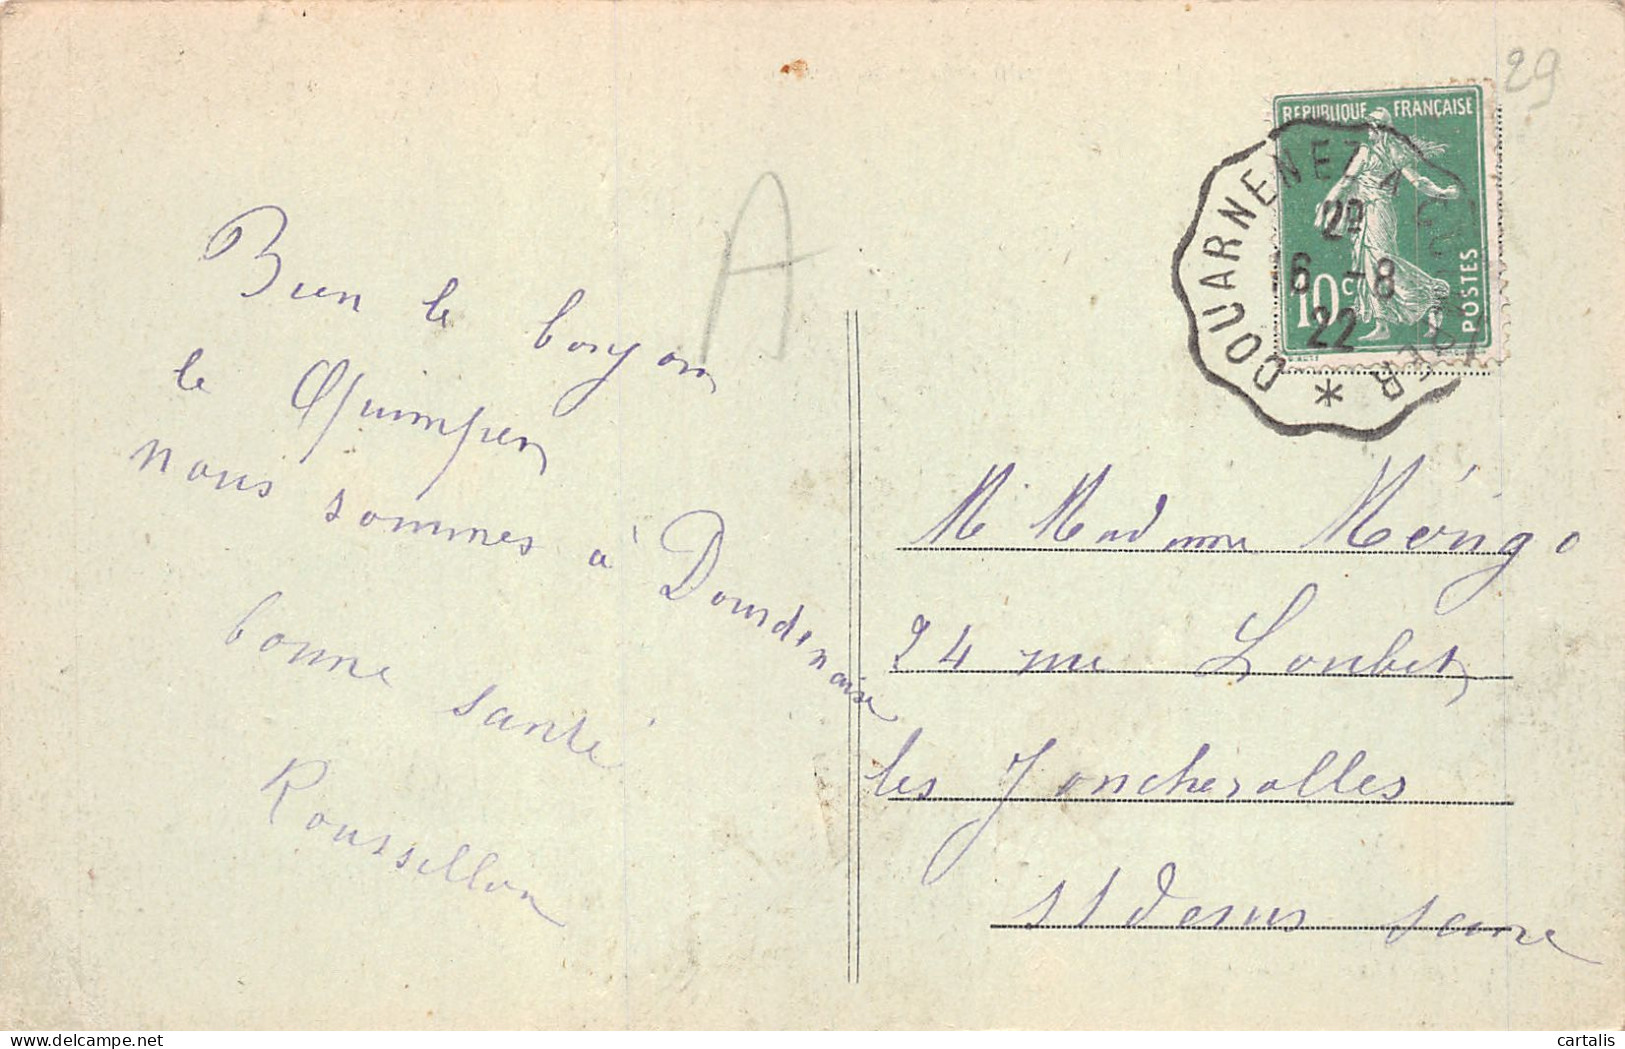 29
REPUBLIQUE FRANÇAISE
10c
POSTES
DOUARNENEZ A
16 -8
22
*
A
Bien le bonjour
de Quimper
nous sommes à Douardenaise
bonne santé
Roussillon
M Madame Mérigo
24 rue Loubet
les Joncherolles
St Denis Seine
cartalis